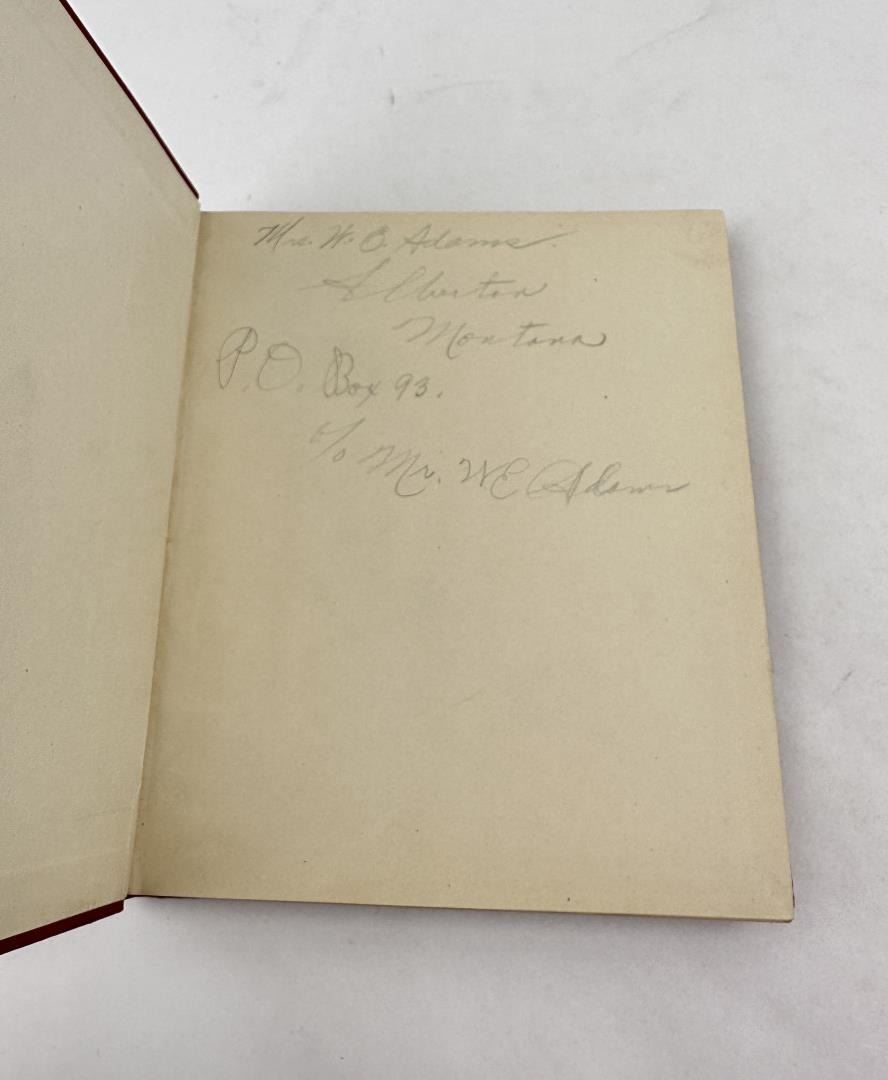 Mrs. W. O. Adams.
Alberton
Montana
P.O. Box 93.
c/o Mr. WE Adams